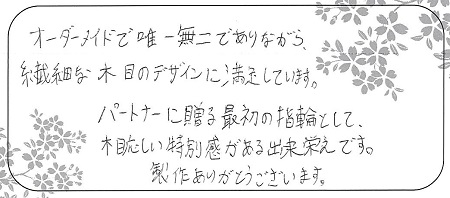 オーダーメイドで唯一無二でありながら、
繊細な木目のデザインに満足しています。
パートナーに贈る最初の指輪として、
相応しい特別感がある出来栄えです。
製作ありがとうございます。